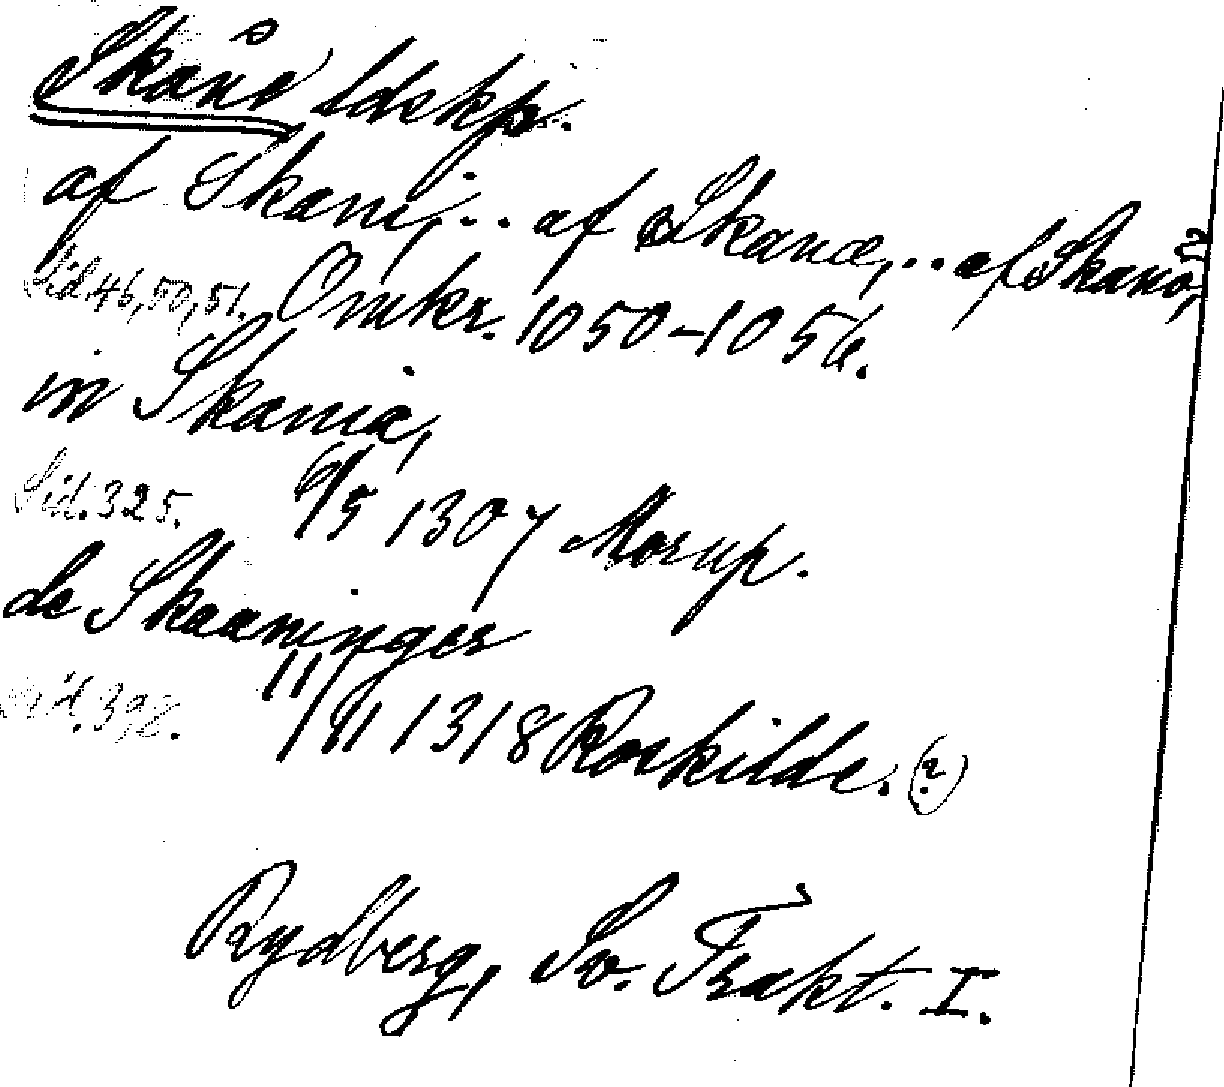 Skåne ldskp.
af Skani, .. af Skanæ, .. af Skanö,
Sid. 46, 50, 51. Omkr. 1050-1056.
in Skania,
Sid. 325. 6/5 1307 Morup.
de Skaaninger
Sid. 392. 11/11 1318 Roskilde. (?)
Rydberg, Sv. Trakt. I.